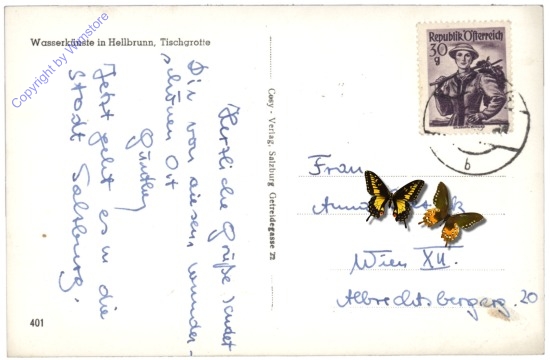 Wasserkünste in Hellbrunn, Tischgrotte
Copyright by Wnrnstore
Herzliche Grüße sendet
Dir von diesem wunder-
schönen Ort
Jetzt geht es in die
Stadt Salzburg.
401
Cosy - Verlag, Salzburg Getreidegasse 22
Republik Österreich
30
g
b
Frau
Wien XII.
Albrechtsbergerg. 20